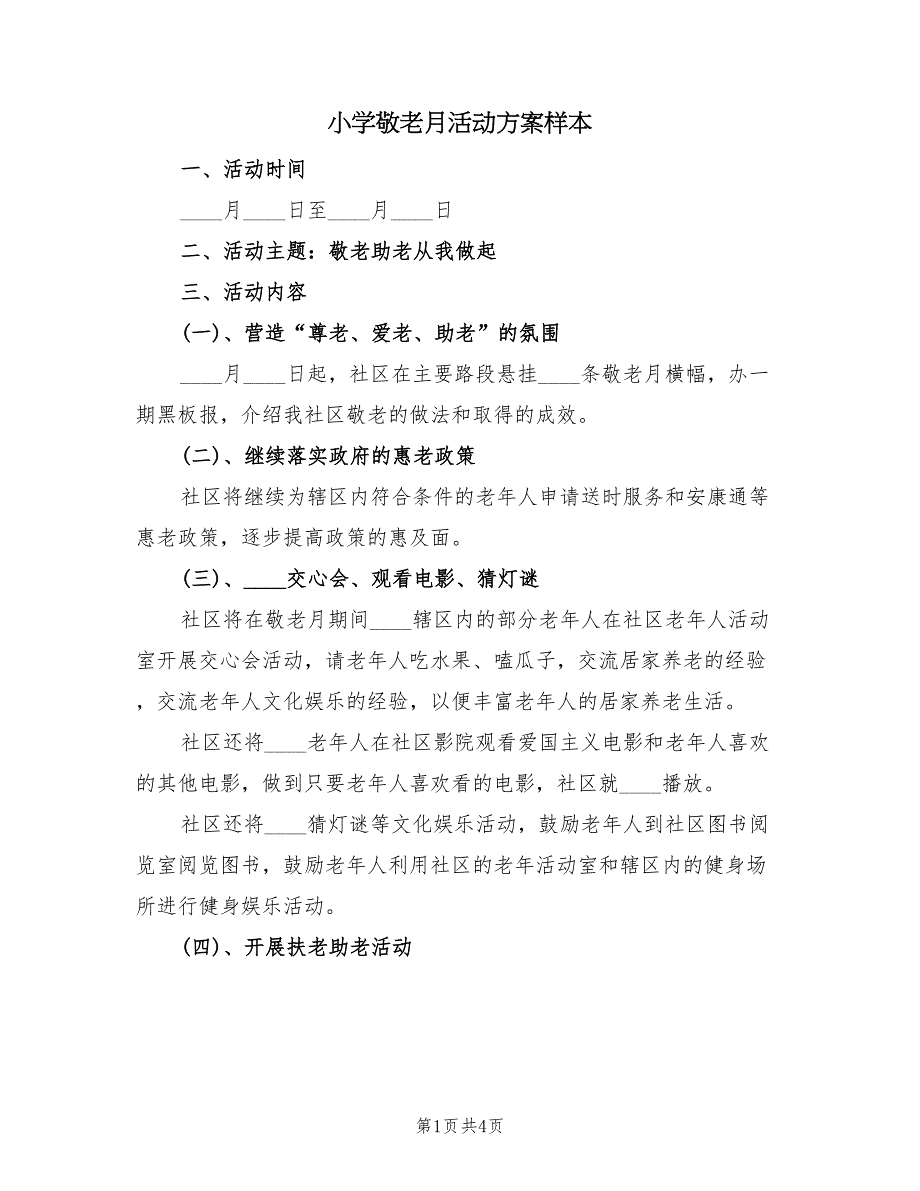 小学敬老月活动方案样本
一、活动时间
____月____日至____月____日
二、活动主题：敬老助老从我做起
三、活动内容
(一)、营造“尊老、爱老、助老”的氛围
____月____日起，社区在主要路段悬挂____条敬老月横幅，办一
期黑板报，介绍我社区敬老的做法和取得的成效。
(二)、继续落实政府的惠老政策
社区将继续为辖区内符合条件的老年人申请送时服务和安康通等
惠老政策，逐步提高政策的惠及面。
(三)、____交心会、观看电影、猜灯谜
社区将在敬老月期间____辖区内的部分老年人在社区老年人活动
室开展交心会活动，请老年人吃水果、嗑瓜子，交流居家养老的经验
，交流老年人文化娱乐的经验，以便丰富老年人的居家养老生活。
社区还将____老年人在社区影院观看爱国主义电影和老年人喜欢
的其他电影，做到只要老年人喜欢看的电影，社区就____播放。
社区还将____猜灯谜等文化娱乐活动，鼓励老年人到社区图书阅
览室阅览图书，鼓励老年人利用社区的老年活动室和辖区内的健身场
所进行健身娱乐活动。
(四)、开展扶老助老活动
第1页共4页